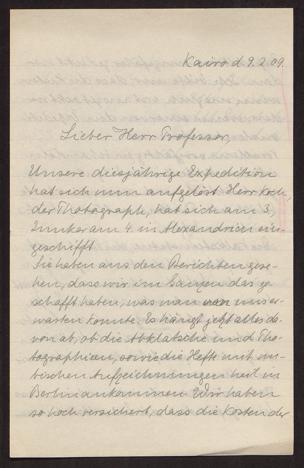 Kairo d 9. 2. 09.
Lieber Herr Professor,
Unsere diesjährige Expedition
hat sich nun aufgelöst. Herr Koch
der Photograph, hat sich am 3,
Junker am 4. in Alexandrien ein-
geschifft.
Sie haben aus den Berichten gese-
hen, dass wir im Ganzen das ge-
schafft haben, was man von uns er-
warten konnte. Es hängt jetzt alles da-
von ab, ob die Abklatsche und Pho-
tographien, sowie die Hefte mit
tischen Aufzeichnungen heil in
Berlin ankommen. Wir haben
so hoch versichert, dass die Kosten der